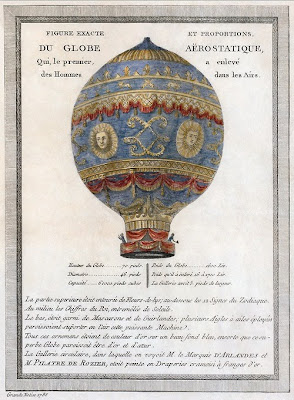 FIGURE EXACTE ET PROPORTIONS,
DU GLOBE AËROSTATIQUE,
Qui, le premier, a enlevé
des Hommes dans les Airs.
Hauteur du Globe ...... 70 pieds
Diametre ...... 46 pieds
Capacité ...... 60000 pieds cubes
Poids du Globe ...... 1600 Liv.
Poids qu'il a enlevé 16 à 1700 Liv.
La Gallerie avoit 3 pieds de largeur
La partie superieure étoit entourée de Fleurs-de-lys; au dessous les 12 signes du Zodiaque,
du milieu les Chiffres du Roi, entremêlés de Soleils.
Le bas, étoit garni de Mascarons et de Guirlandes; plusieurs Aigles à ailes éployées
paroissoient supporter en l'air cette puissante Machine.
Tous ces ornemens étoient de couleur d'or sur un beau fond bleu, ensorte que ce su-
perbe Globe paroissoit être d'or et d'azur.
La Gallerie circulaire, dans laquelle on voyoit M. le Marquis D'ARLANDES et
M. PILATRE DE ROZIER, étoit peinte en Draperies cramoisi à franges d'or.
1786